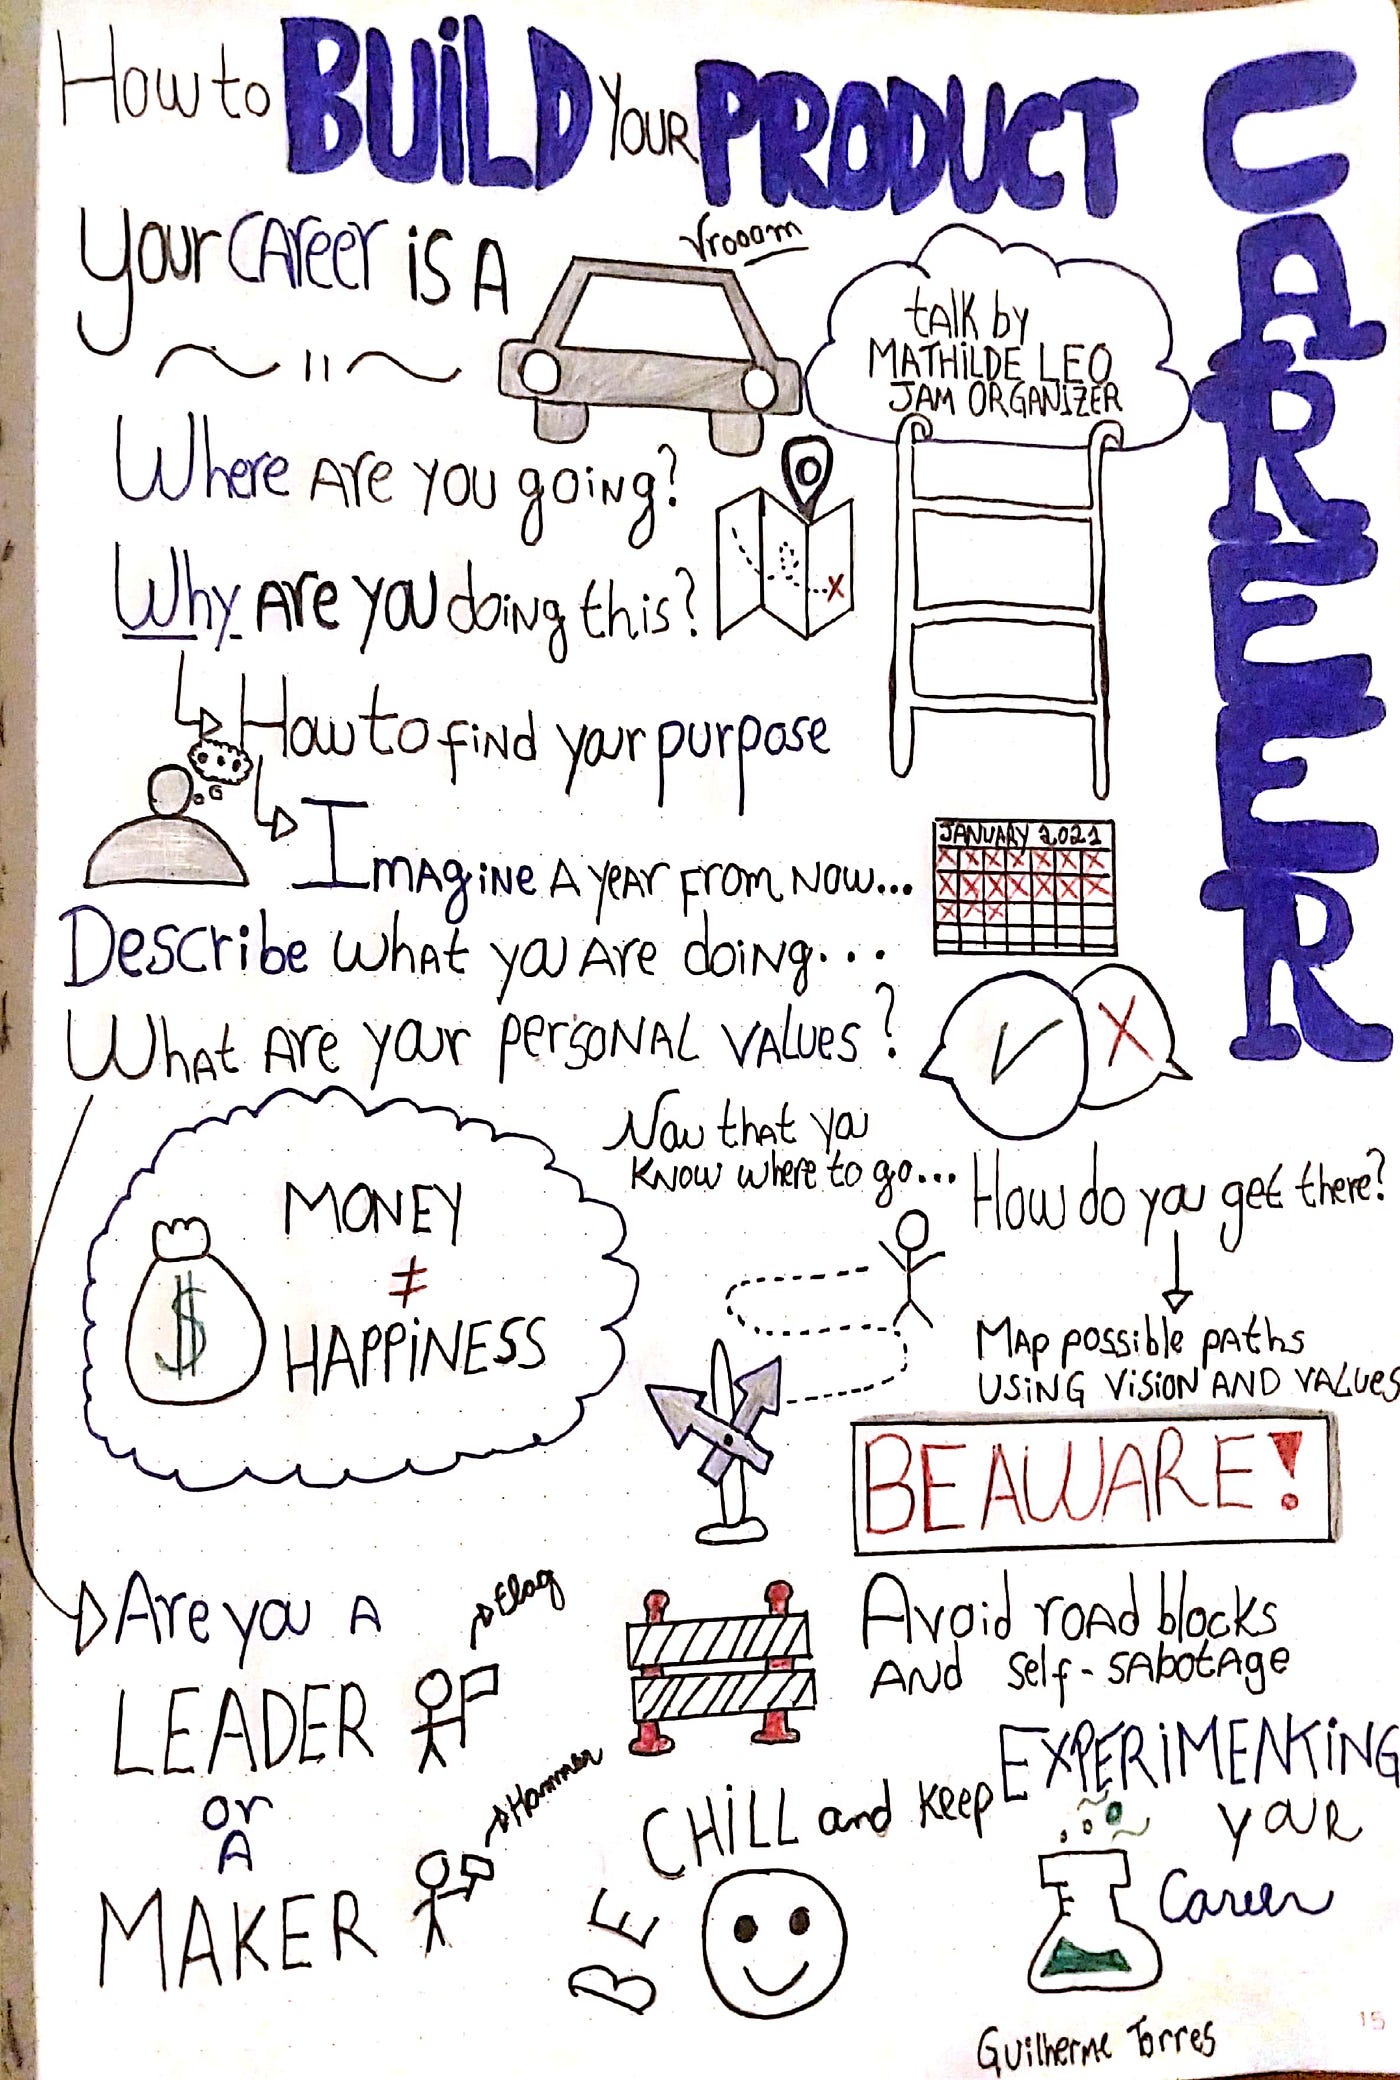 How to BUiLD YOUR PRODUCT
CAREER
Your CAreer is A
Vrooom
talk by
MATHiLDE LEO
JAM ORGANiZER
Where Are you going?
Why Are you doing this?
How to find your purpose
Imagine A year From Now...
JANUARY 2021
Describe what you Are doing...
What Are your personal values?
MONEY
≠
HAPPiNESS
$
Now that you
know where to go...
How do you get there?
Map possible paths
using vision and values
BE AWARE!
Are you A
LEADER
or
A
MAKER
Flag
Hammer
Avoid road blocks
And self-sabotage
BE CHiLL and keep EXPERiMENKiNG
your
Career
Guilherme Torres
15